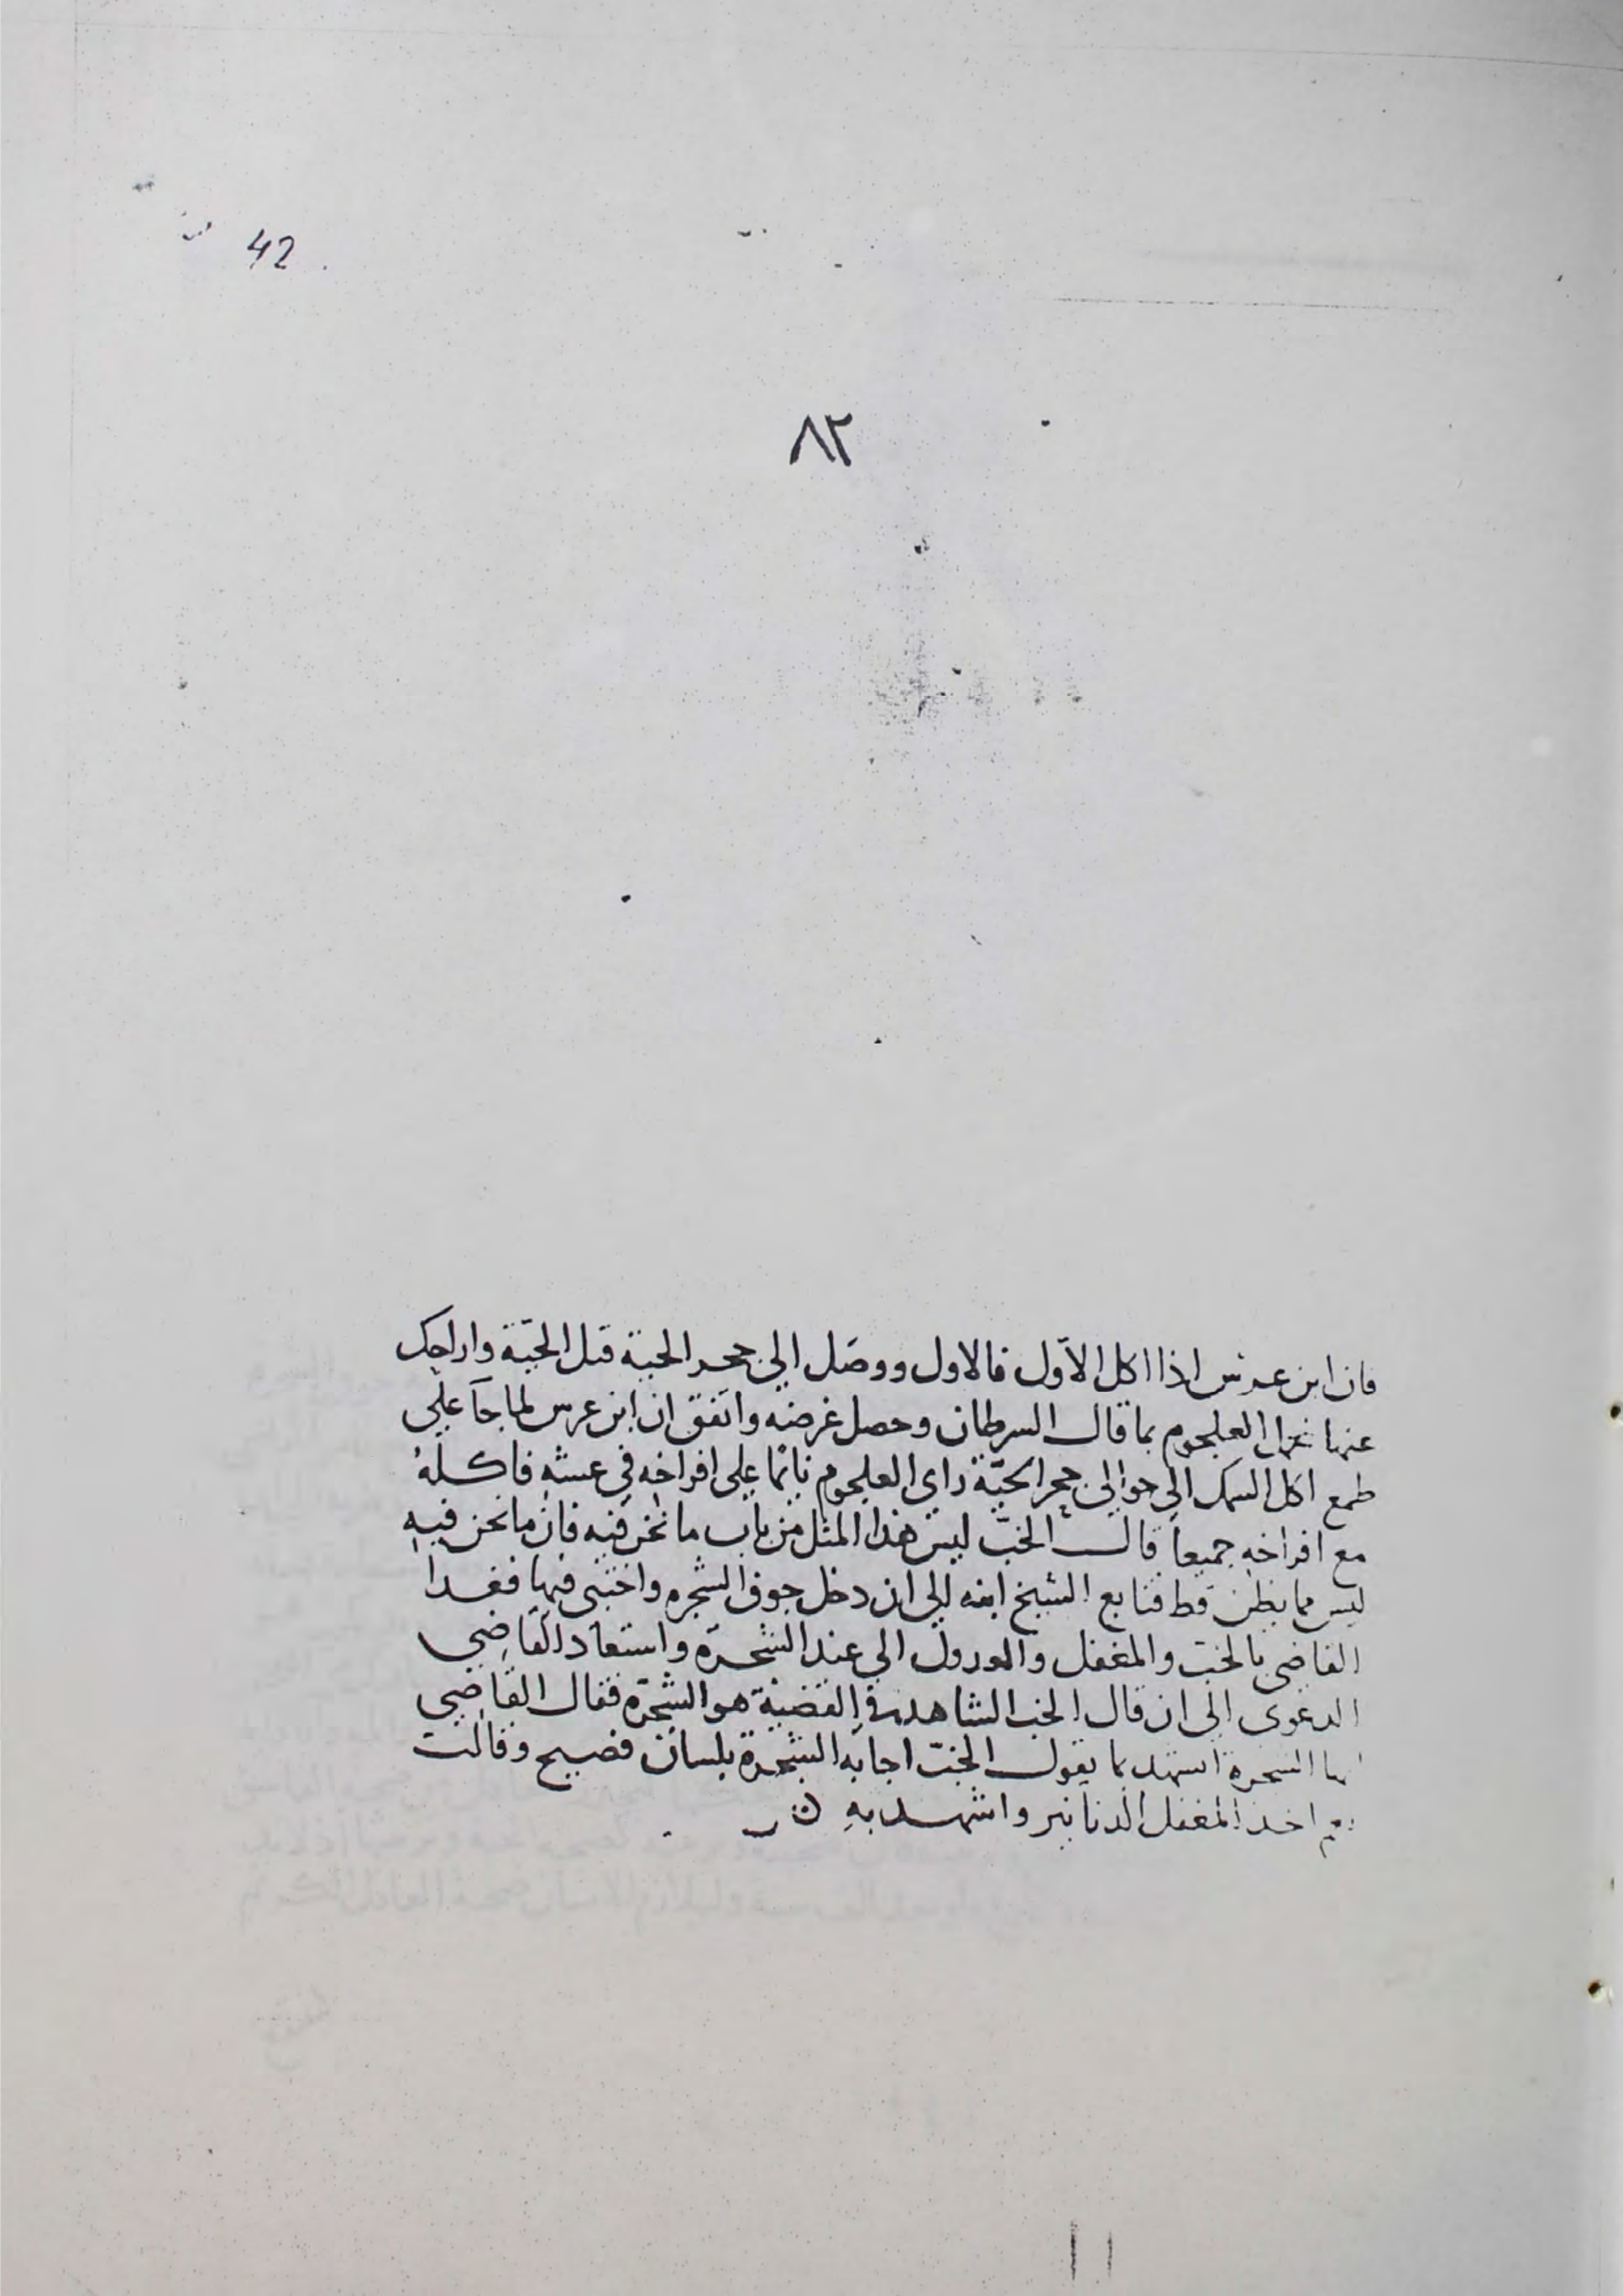 42
٨٢
فان ابن عرس اذا اكل الاوّل فالاول ووصل الي جحر الحية قتل الحيّة واراحك
عنها فعمل العلجوم بما قال السرطان وحصل غرضه واتفق ان ابن عرس لما جآ علي
طمع اكل السمك الي حوالي جحر الحيّة راي العلجوم نائما علي افراخه في عشه فاكله
مع افراخه جميعا قال الخبّ ليس هذا المثل من باب ما نحن فيه فان ما نحن فيه
ليس مما يظن قط فتابع الشيخ ابنه الي ان دخل جوف الشجره واختبى فيها فغدا
القاضي بالخب والمغفل والعدول الي عند الشجرة واستعاد القاضي
الدعوى الي ان قال الخب الشاهد في القضية هو الشجرة فقال القاضي
السجرة اتشهد بما يقول الخبّ اجابه الشجرة بلسان فصيح وقالت
اخذ المغفل الدنانير واشهد به